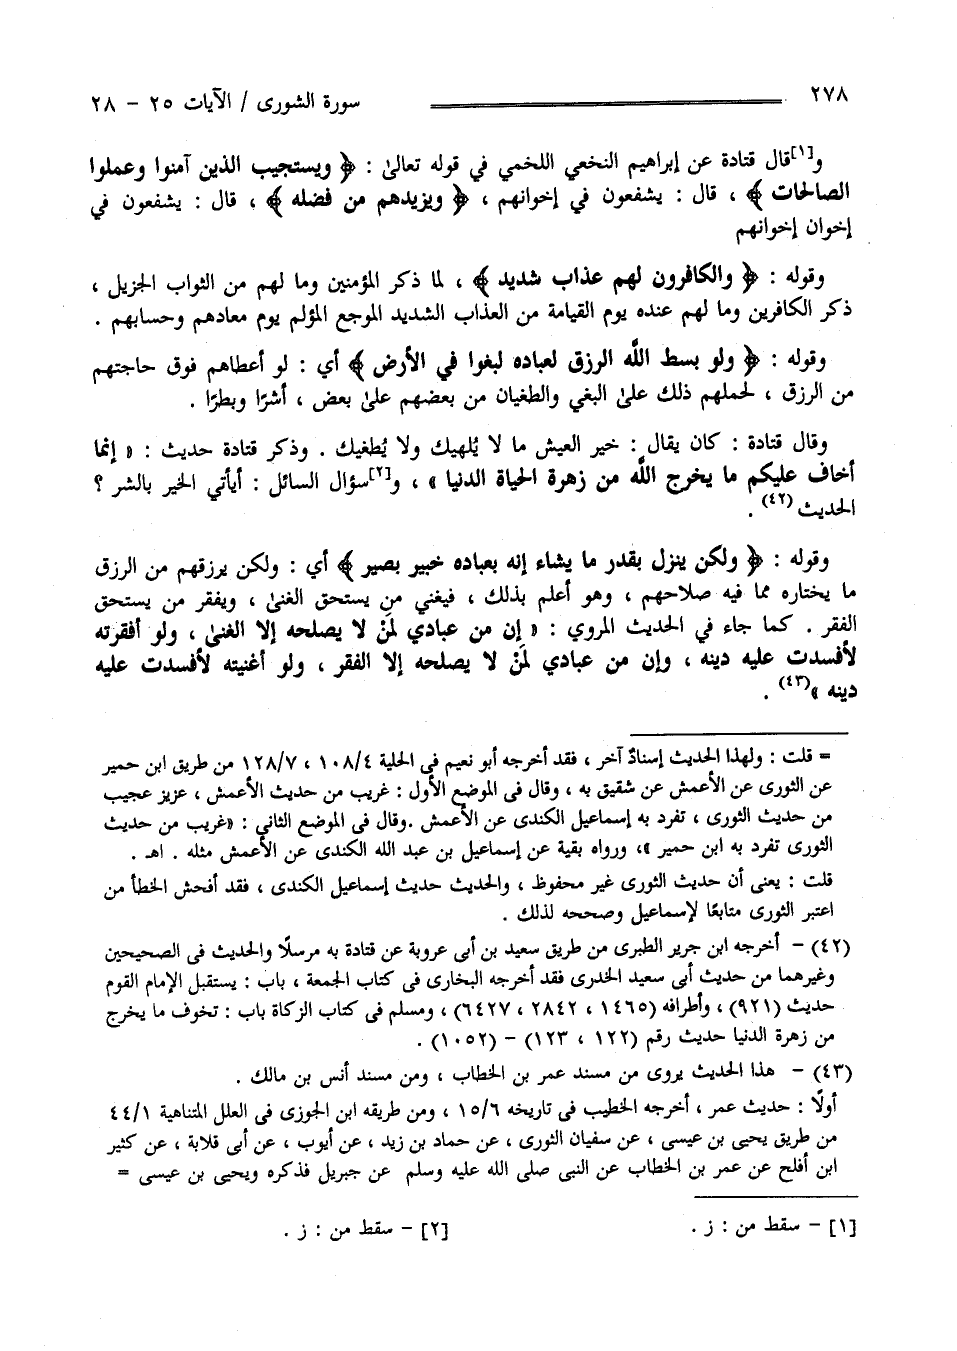 ٢٧٨
سورة الشورى / الآيات ٢٥ - ٢٨
و[١]قال قتادة عن إبراهيم النخعي اللخمي في قوله تعالىٰ : ﴿ ويستجيب الذين آمنوا وعملوا
الصالحات ﴾ ، قال : يشفعون في إخوانهم ، ﴿ ويزيدهم من فضله ﴾ ، قال : يشفعون في
إخوان إخوانهم
وقوله : ﴿ والكافرون لهم عذاب شديد ﴾ ، لما ذكر المؤمنين وما لهم من الثواب الجزيل ،
ذكر الكافرين وما لهم عنده يوم القيامة من العذاب الشديد الموجع المؤلم يوم معادهم وحسابهم .
وقوله : ﴿ ولو بسط اللَّه الرزق لعباده لبغوا في الأرض ﴾ أي : لو أعطاهم فوق حاجتهم
من الرزق ، لحملهم ذلك علىٰ البغي والطغيان من بعضهم علىٰ بعض ، أشرًا وبطرًا .
وقال قتادة : كان يقال : خير العيش ما لا يُلهيك ولا يُطغيك . وذكر قتادة حديث : « إنما
أخاف عليكم ما يخرج اللَّه من زهرة الحياة الدنيا » ، و[٢]سؤال السائل : أيأتي الخير بالشر ؟
الحديث (٤٢) .
وقوله : ﴿ ولكن ينزل بقدر ما يشاء إنه بعباده خبير بصير ﴾ أي : ولكن يرزقهم من الرزق
ما يختاره مما فيه صلاحهم ، وهو أعلم بذلك ، فيغني من يستحق الغنىٰ ، ويفقر من يستحق
الفقر . كما جاء في الحديث المروي : « إن من عبادي لَمَنْ لا يصلحه إلا الغنىٰ ، ولو أفقرته
لأفسدت عليه دينه ، وإن من عبادي لَمَنْ لا يصلحه إلا الفقر ، ولو أغنيته لأفسدت عليه
دينه »(٤٣) .
= قلت : ولهذا الحديث إسنادٌ آخر ، فقد أخرجه أبو نعيم فى الحلية ١٠٨/٤ ، ١٢٨/٧ من طريق ابن حمير
عن الثورى عن الأعمش عن شقيق به ، وقال فى الموضع الأول : غريب من حديث الأعمش ، عزيز عجيب
من حديث الثورى ، تفرد به إسماعيل الكندى عن الأعمش .وقال فى الموضع الثانى : «غريب من حديث
الثورى تفرد به ابن حمير »، ورواه بقية عن إسماعيل بن عبد الله الكندى عن الأعمش مثله . اهـ .
قلت : يعنى أن حديث الثورى غير محفوظ ، والحديث حديث إسماعيل الكندى ، فقد أفحش الخطأ من
اعتبر الثورى متابعًا لإسماعيل وصححه لذلك .
(٤٢) - أخرجه ابن جرير الطبرى من طريق سعيد بن أبى عروبة عن قتادة به مرسلًا والحديث فى الصحيحين
وغيرهما من حديث أبى سعيد الخدرى فقد أخرجه البخارى فى كتاب الجمعة ، باب : يستقبل الإمام القوم
حديث (٩٢١) ، وأطرافه (١٤٦٥ ، ٢٨٤٢ ، ٦٤٢٧) ، ومسلم فى كتاب الزكاة باب : تخوف ما يخرج
من زهرة الدنيا حديث رقم (١٢٢ ، ١٢٣) - (١٠٥٢) .
(٤٣) - هذا الحديث يروى من مسند عمر بن الخطاب ، ومن مسند أنس بن مالك .
أولًا : حديث عمر ، أخرجه الخطيب فى تاريخه ١٥/٦ ، ومن طريقه ابن الجوزى فى العلل المتناهية ٤٤/١
من طريق يحيى بن عيسى ، عن سفيان الثورى ، عن حماد بن زيد ، عن أيوب ، عن أبى قلابة ، عن كثير
ابن أفلح عن عمر بن الخطاب عن النبى صلى الله عليه وسلم عن جبريل فذكره ويحيى بن عيسى =
[١] - سقط من : ز .
[٢] - سقط من : ز .